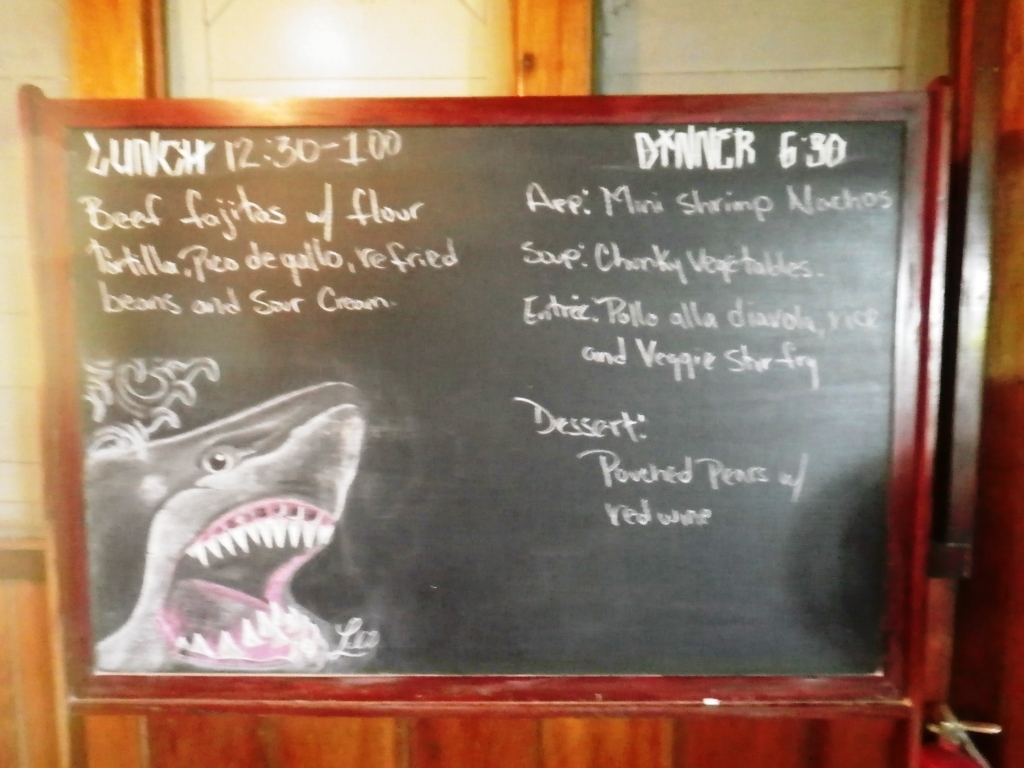 LUNCH 12:30-100
Beef fajitas w/ flour
tortilla, Pico de gallo, refried
beans and Sour Cream.
DINNER 6:30
App: Mini shrimp Nachos
Soup: Chunky Vegetables.
Entrée: Pollo alla diavola, rice
and Veggie stir fry
Dessert:
Pouched Pears w/
red wine
Leo